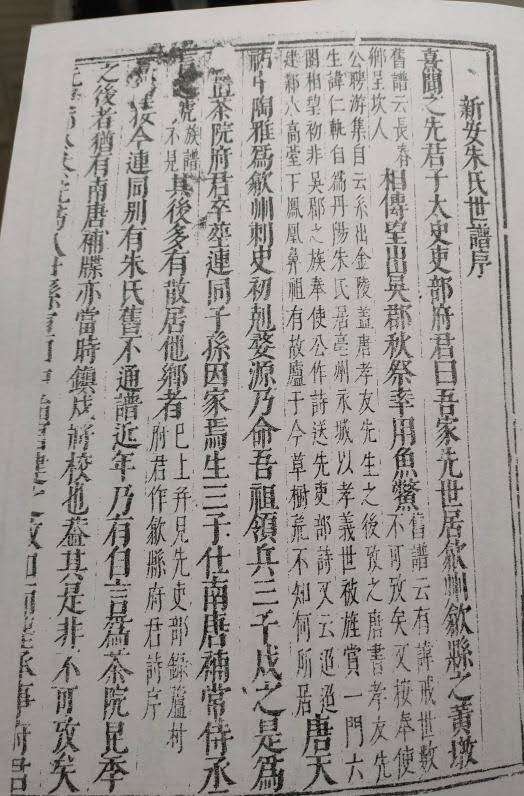 新安朱氏世譜序
熹聞之先君子太史吏部府君曰吾家先世居歙州歙縣之黃墩
舊譜云長春
鄉呈坎人
相傳望出吳郡秋祭率用魚鱉
舊譜云有諱戒世數
不可攷矣又按奉使
公聘游集自云系出金陵蓋唐孝友先生之後攷之唐書孝友先
生諱仁軌自為丹陽朱氏居亳州永城以孝義世被旌賞一門六
闕相望初非吳郡之族奉使公作詩送先吏部詩又云迢迢
建鄴水高臺下鳳凰鼻祖有故廬于今草樹荒不知何所居
唐天
祐中陶雅為歙州刺史初剋婺源乃命吾祖領兵三千戍之是為
茶院府君卒葬連同子孫因家焉生三子仕南唐補常侍承
號
族譜
不見
其後多有散居他鄉者
已上并見先吏部錄蘆村
府君作歙縣府君詩序
按今連同別有朱氏舊不通譜近年乃有自言為茶院昆季
之後者猶有南唐補牒亦當時鎮戍將校也蓋其是非不可攷矣